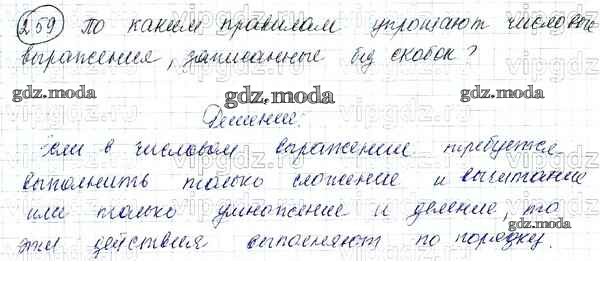 259 По каким правилам упрощают числовые
выражения, записанные без скобок?
gdz.moda gdz.moda gdz.moda
Решение:
Если в числовом выражении требуется
выполнить только сложение и вычитание
или только умножение и деление, то
gdz.moda gdz.moda
эти действия выполняют по порядку.